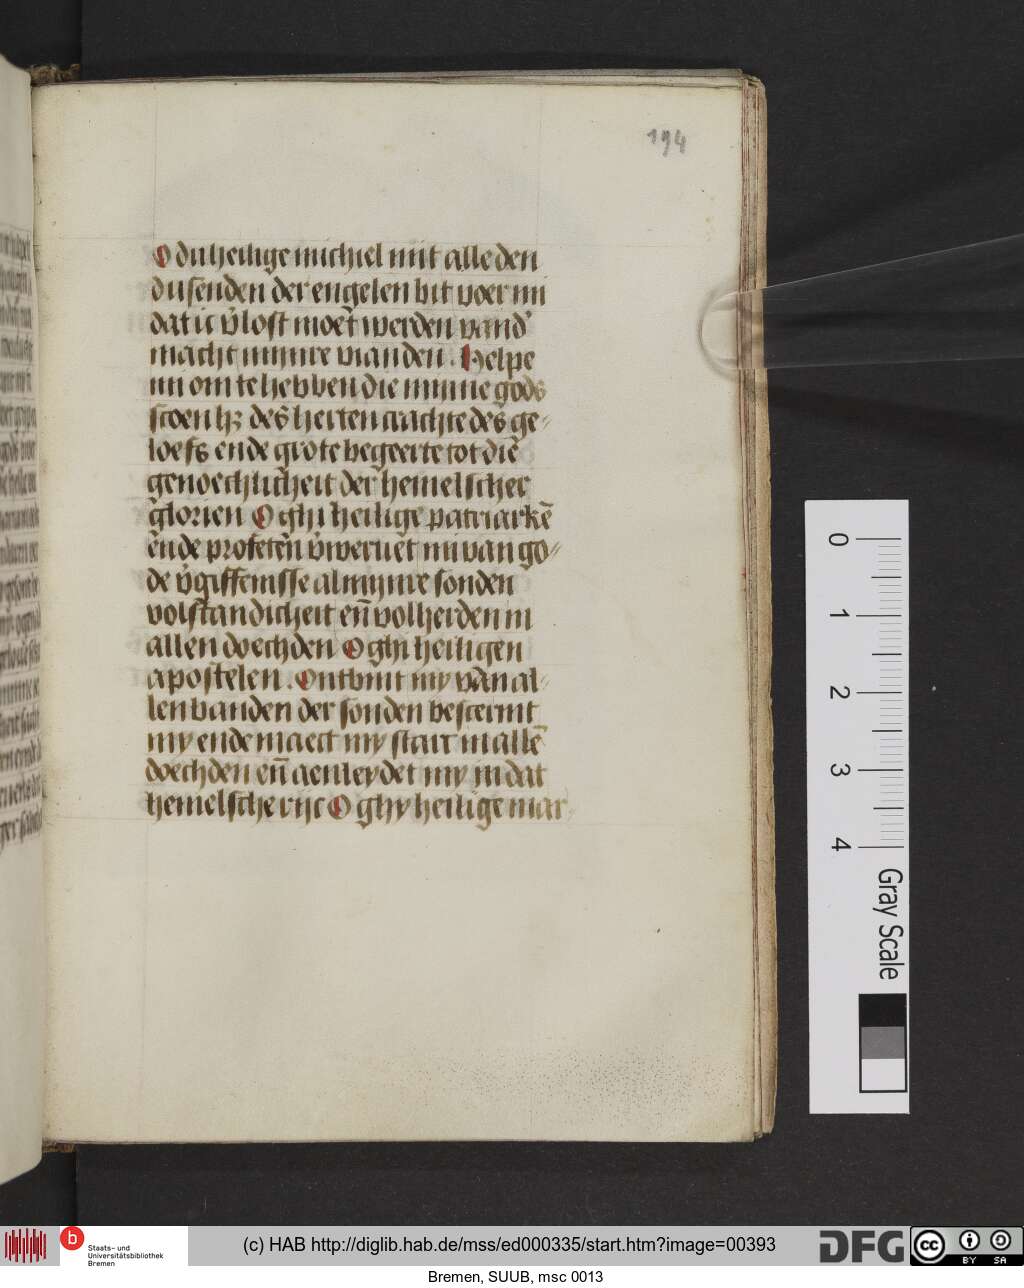 194
O du heilige michiel mit alle den
dusenden der engelen bit voer mi
dat ic v̄lost moet werden vand̕
macht mijnre vianden . Helpe
mi om te hebben die mynne gods
scoenhꝫ des herten crachte des ge⸗
loefs ende grote begeerte tot die
genoechlicheit der hemelscher
glorien O ghi heilige patriarkē
ende profeten v̄wervet mi van go⸗
de v̄giffenisse al mijnre sonden
volstandicheit en̄ volherden in
allen doechden O ghi heiligen
apostelen . Ontbint my van al⸗
len banden der sonden bescermt
my ende maect my starc in allē
doechden en̄ aenleydet my in dat
hemelsche rijc O ghy heilige mar
0
1
2
3
4
Gray Scale
b Staats- und
Universitätsbibliothek
Bremen
(c) HAB http://diglib.hab.de/mss/ed000335/start.htm?image=00393
DFG
cc BY SA
Bremen, SUUB, msc 0013